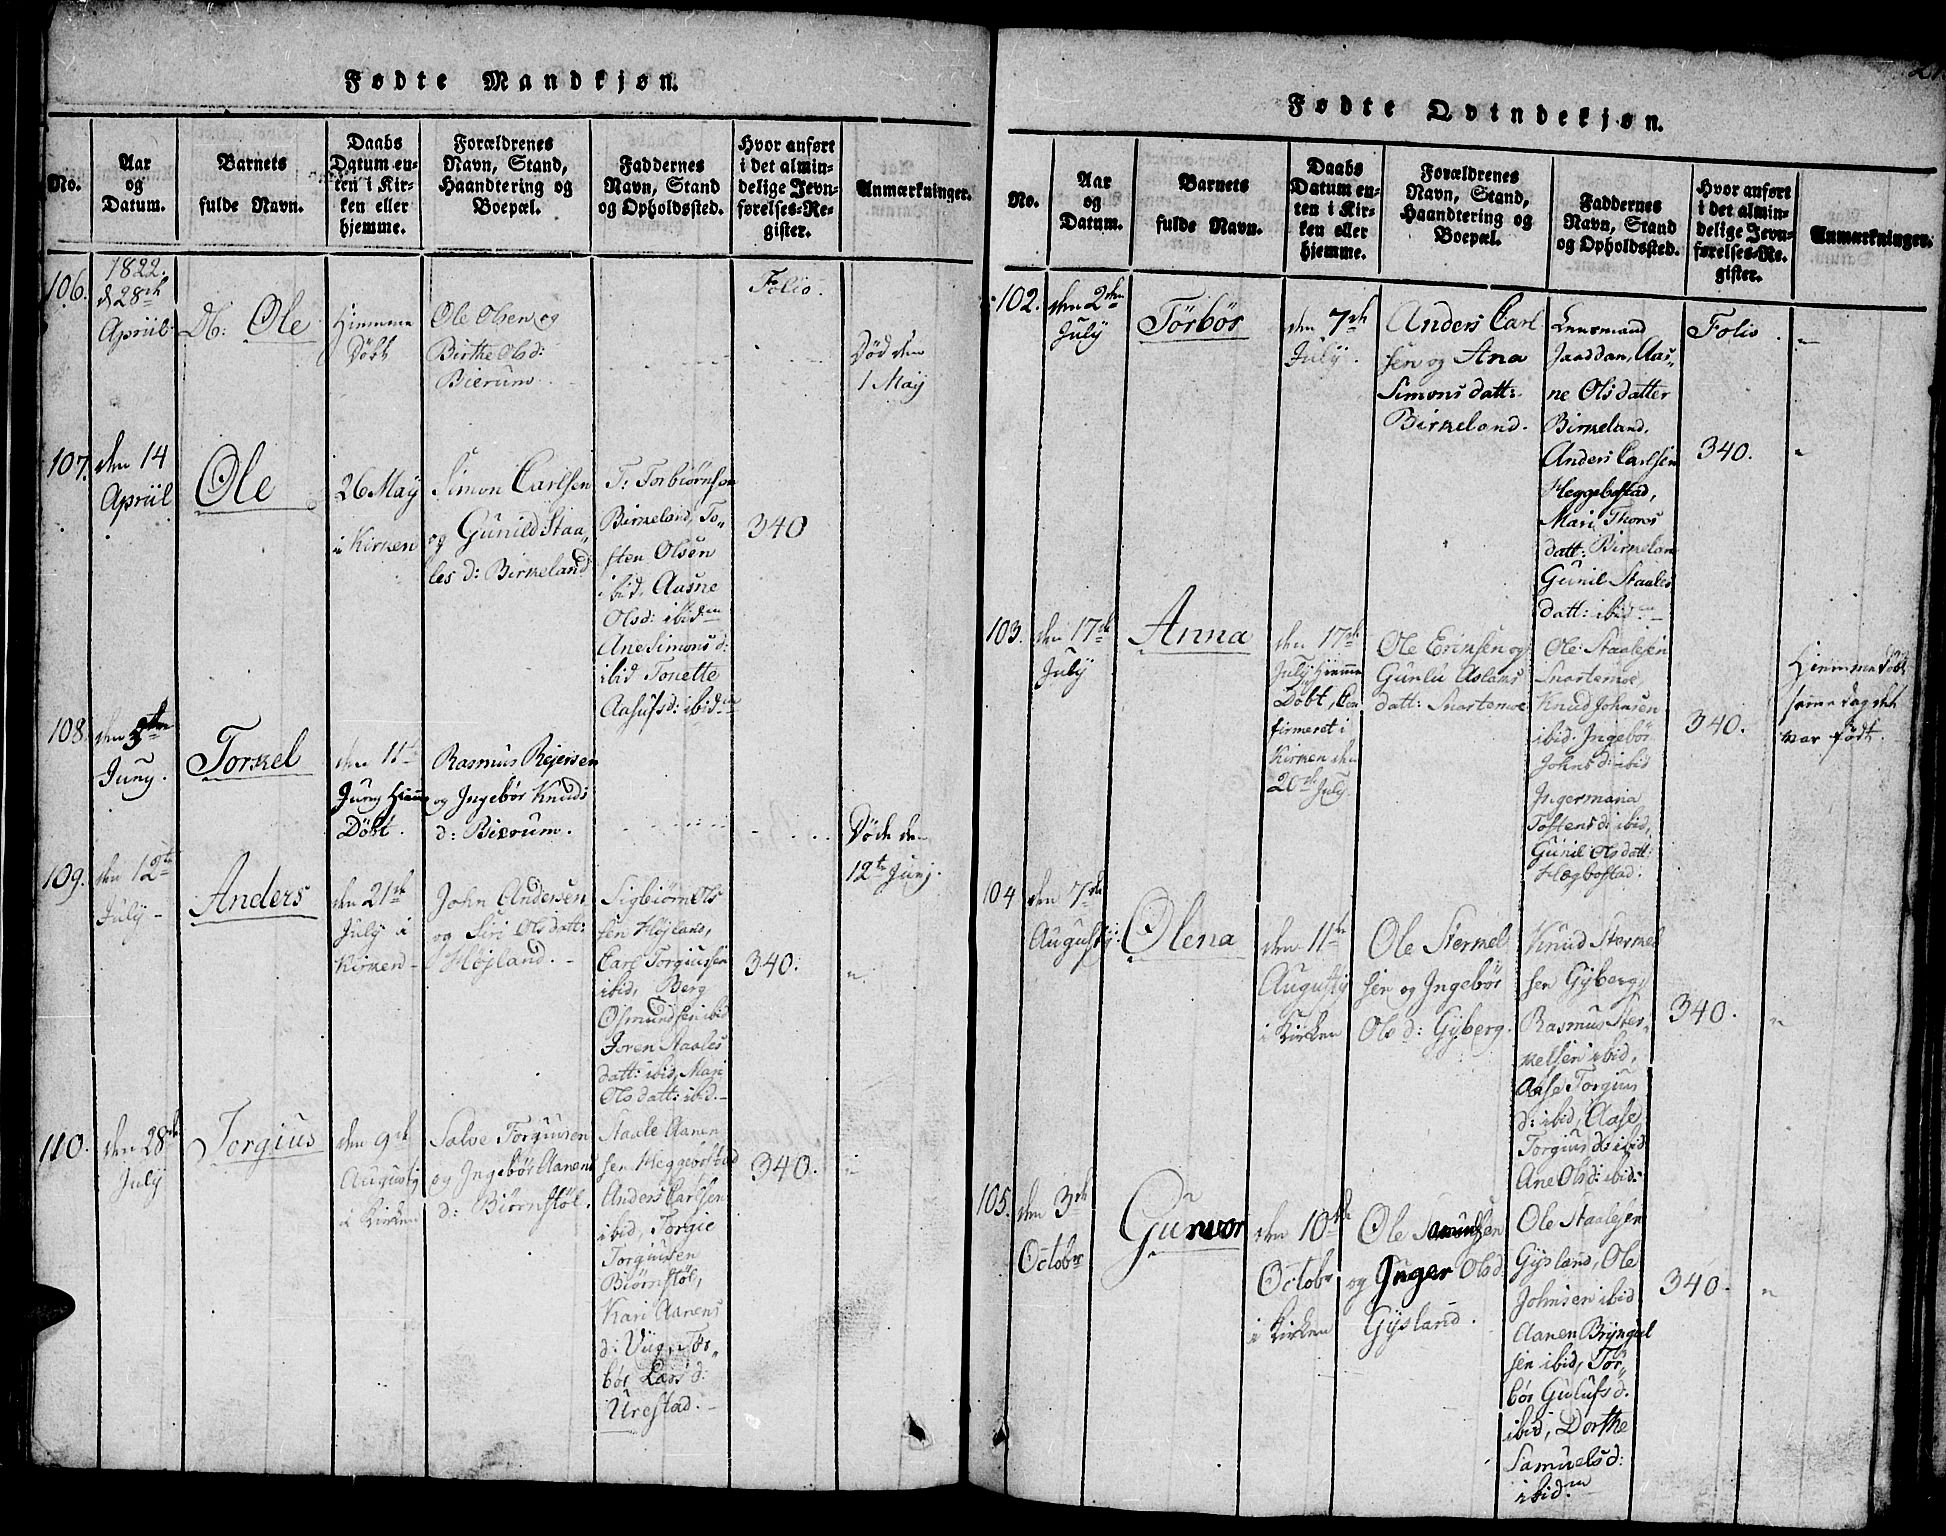 Fødte Mandkjøn.
No.
Aar
og
Datum.
Barnets
fulde Navn.
Daabs
Datum en-
ten i Kir-
ken eller
hjemme.
Forældrenes
Navn, Stand,
Haandtering og
Boepæl.
Faddernes
Navn, Stand
og Opholdssted.
Hvor anført
i det almin-
delige Jevn-
førelses-Re-
gister.
Anmærkninger.
106.
1822.
d 28de
Apriil.
Db: Ole
Hiemme
Döbt
Ole Olsen og
Birthe Olsd:
Bierum.
Folio.
Död den
1 Maÿ
107.
den 14
Apriil
Ole
26 Maÿ
i Kirken
Simon Carlsen
og Gunild Staa„
les d: Birkeland
T: Torbiörnsen
Birkeland, To„
sten Olsen
ibid, Aasne
Olsd: ibidm
Ane Simons d:
ibid Tonette
Aasulfsd: ibidm
340
108.
den 5ten
Juny.
Torkel
den 11te
Juny Hiemme
Döbt.
Rasmus Rejersen
og Ingebör Knuds
d: Bierum.
Döde den
12te Junj.
109.
den 12te
Julÿ -
Anders
den 21de
Julÿ i
Kirken -
John Andersen
og Siri Olsdatt:
Höjland. -
Sigbiörn Ols
sen Höjland,
Carl Torgiussen
ibid, Berg
Osmundsen ibid
Joren Staales
datt: ibid, Mari
Olsdatt: ibid. -
340.
"
110.
den 28de
July
Torgius
den 9de
Augustj
i Kirken
Salve Torgiusen
og Ingebör Aanens
d: Biörnstöl.
Staale Aanen
sen Heggebostad
Anders Carlsen
ibid, Torgie
Torgiusen
Biörnstöl,
Kari Aanens
d: Viig, Tor„
bör Lars d:
Urestad. -
340.
"
Fødte Qvindekjøn.
No.
Aar
og
Datum.
Barnets
fulde Navn.
Daabs
Datum en-
ten i Kir-
ken eller
hjemme.
Forældrenes
Navn, Stand,
Haandtering og
Boepæl.
Faddernes
Navn, Stand
og Opholdssted.
Hvor anført
i det almin-
delige Jevn-
førelses-Re-
gister.
Anmærkninger.
102.
den 2den
Julÿ
Törbör
den 7de
Julÿ.
Anders Carl
sen og Ana
Simons datt:
Birkeland.
Lensmand
Jaaddan, Aas„
ne Olsdatter
Birkeland,
Anders Carlsen
Heggebostad,
Mari Thores
datt: Birkelan
Gunil Staales
datt: ibidm -
Folio.
340.
"
103.
den 17de
Julÿ
Anna
den 17de
Julÿ Hiemme
Döbt, Con
firmeret i
Kirken den
20de Julÿ.
Ole Eriksen og
Gunlu Aslaks
datt: Snartemoe
Ole Staalesen
Snartemoe,
Knud Johnsen
ibid. Ingebör
Johns d: ibid
Ingermaria
Tostens d: ibid,
Gunil Olsdatt:
Hægbostad.
340.
Hiemmedöbt
samme dag det
var født.
104
den 7de
Augustÿ:
Olena
den 11te
Augustÿ
i Kirken
Ole Sterkel
sen og Ingebör
Olsd: Gÿberg.
Knud Sterkel
sen Gÿberg,
Rasmus Ster„
kelsen ibid,
Aase Torgius
d: ibid, Aase
Torgius ds ibid
Ane Olsd: ibid:
340.
"
105.
den 3de
Octobr
Gunvor
den 10de
Octobr
i Kirken
Ole Samuelsen
og Inger Olsd:
Gÿsland.
Ole Staalesen
Gÿsland, Ole
Johnsen ibid
Aanen Brÿngel
sen ibid, Tor„
bör Gulufsd.
ibid, Dorthe
Samuelsd:
ibidm
340.
"